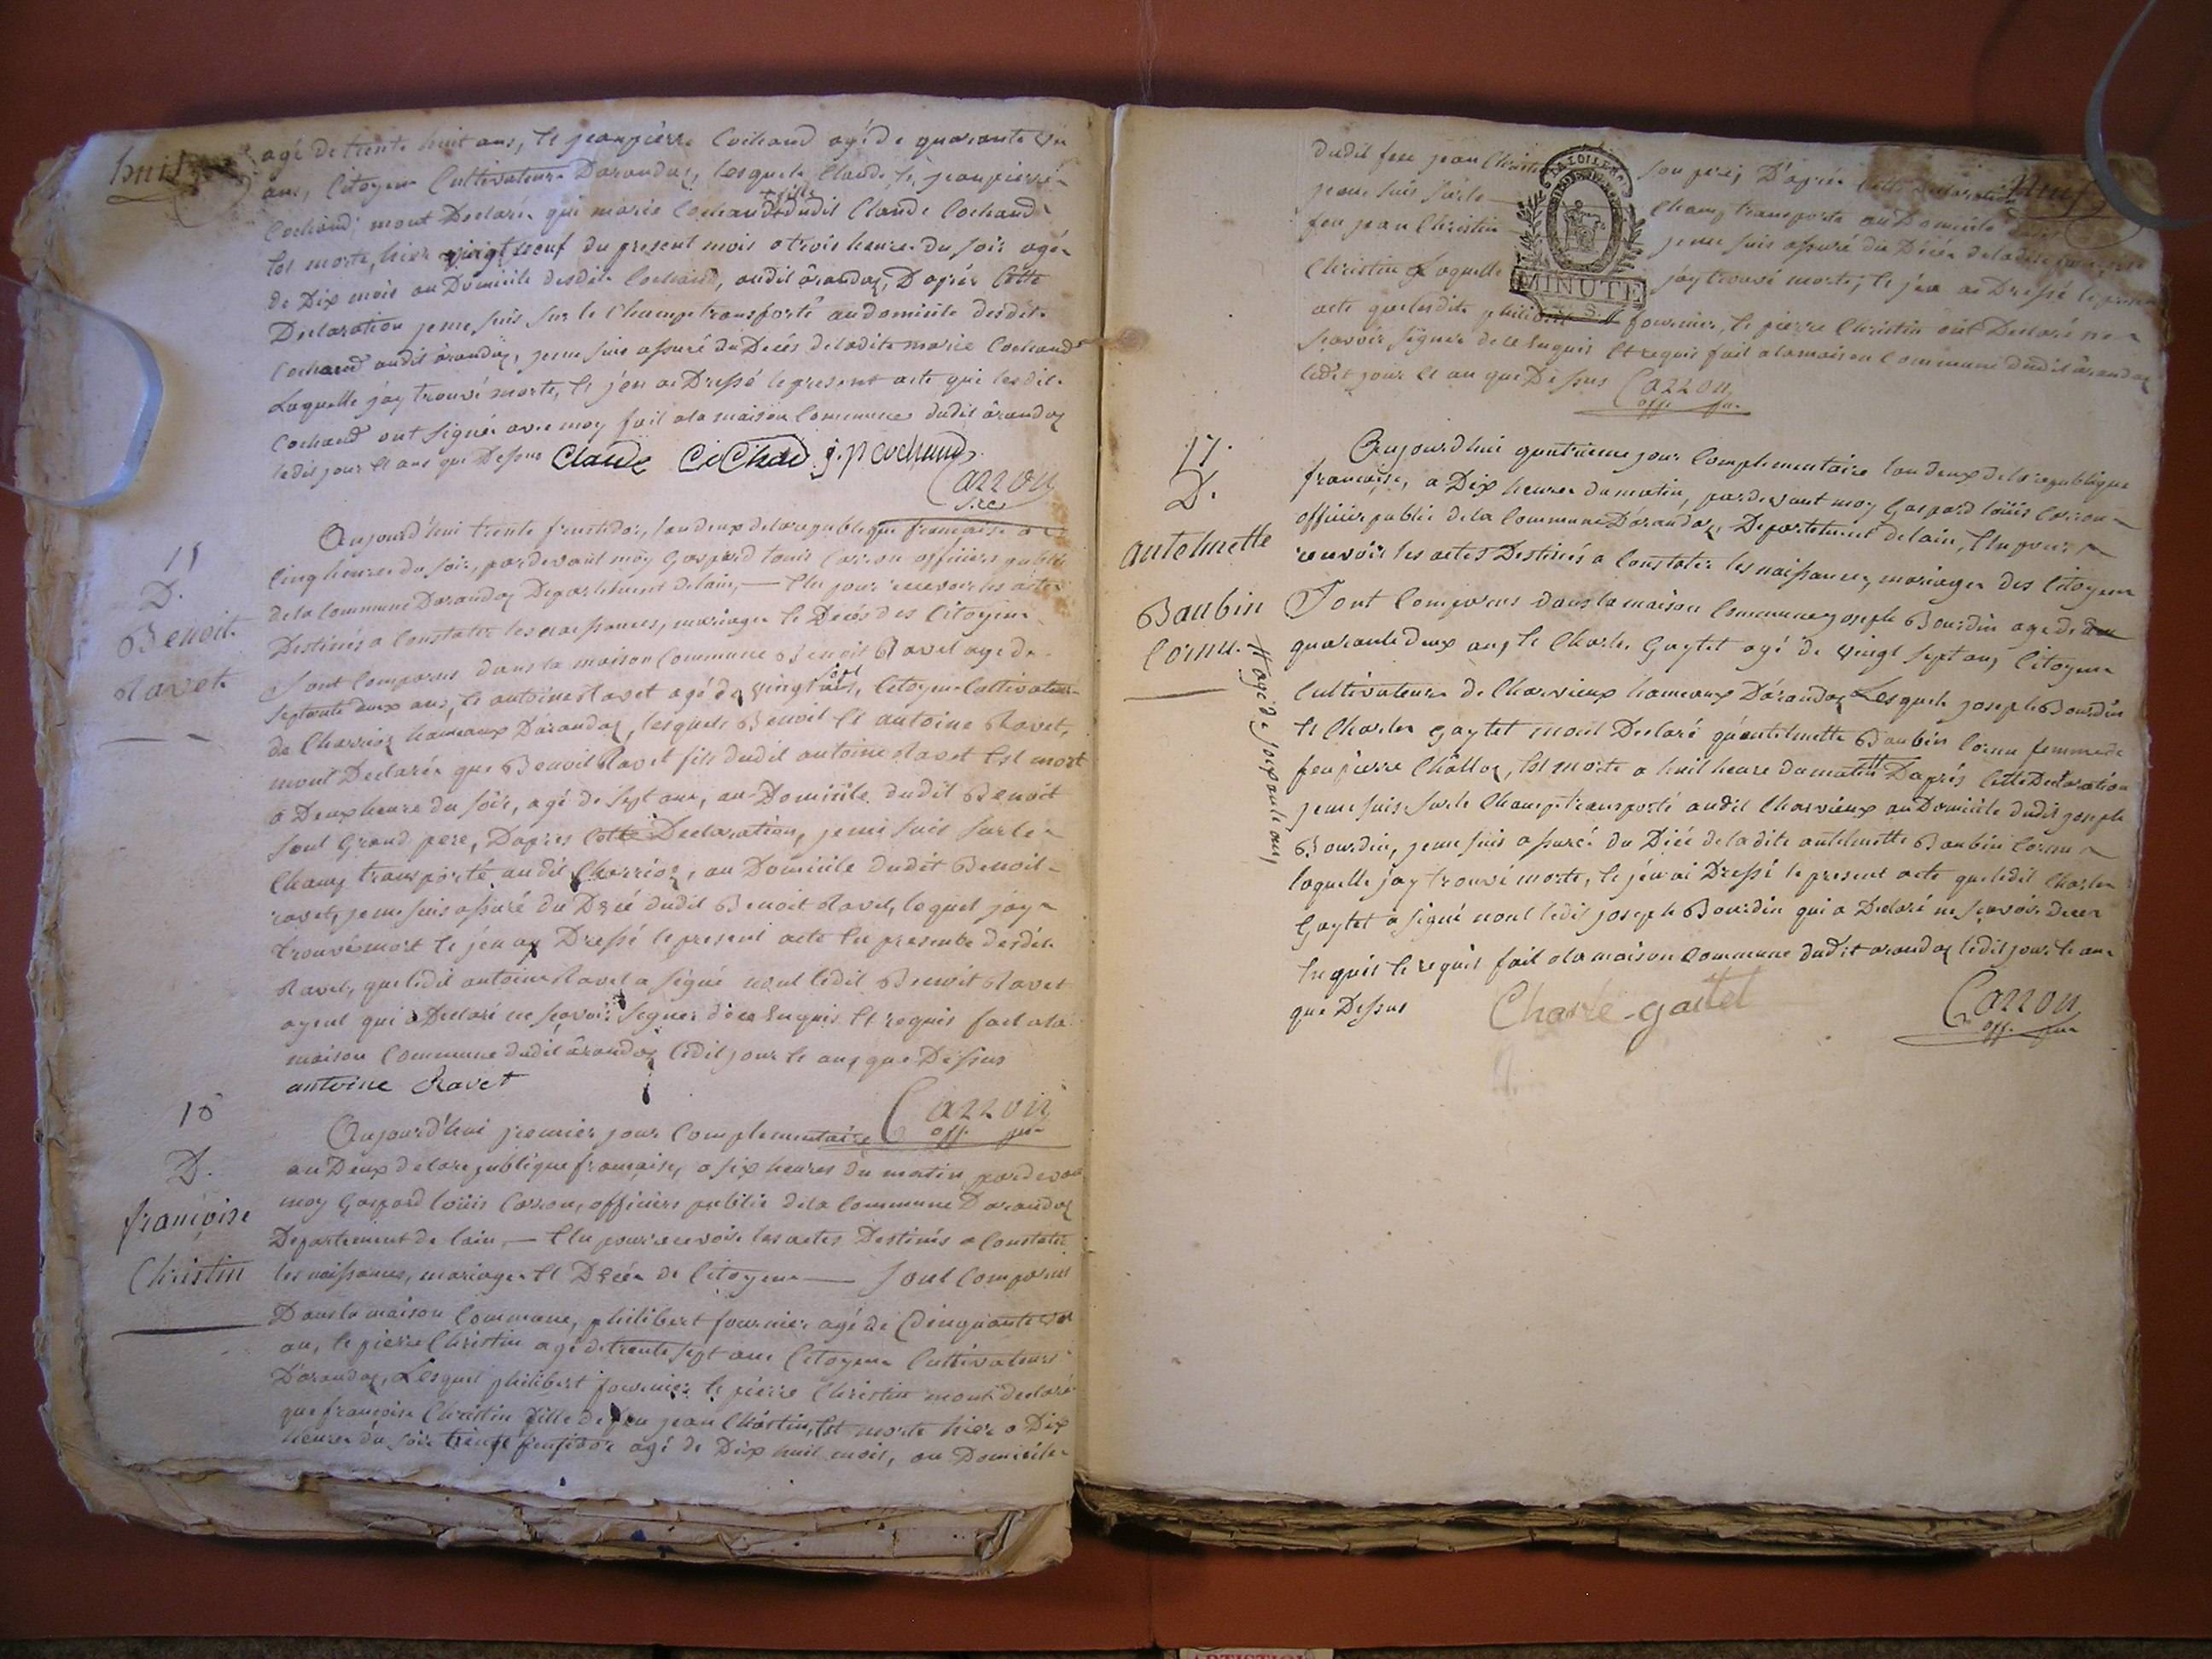 huit
agé de trente huit ans, et jeanpierre Cochand agé de quarante un
ans, Citoyens Cultivateurs Darandaz, lesquels Claude et jeanpierre
Cochand mont Declarés que marie Cochand fille dudit Claude Cochand
Est morte, hier vingt neuf du present mois a trois heures du soir agée
de Dix mois au Domicile desdits Cochand, audit ârandaz, D'aprés Cette
Declaration je me suis sur le Champ transporté au domicile desdits
Cochand audit ârandaz, je me suis assuré du Decés de ladite marie Cochand
Laquelle j'ay trouvé morte, et j'en ai Dressé le present acte que lesdits
Cochand ont signés avec moy fait a la maison Commune dudit ârandaz
ledit jour et ans que Dessus Claude CoChad j. p cochand
Carron
15
D.
Benoit
Ravet
Aujourd'hui trente fructidor, l'an deux de la republique francaise a
Cinq heures du soir, pardevant moy Gaspard louis Carron officiers public
de la Commune Darandaz Departement de lain, — Elu pour recevoir les actes
Destinés a Constater les naissances, mariages et Decés des Citoyens
Sont Comparus dans la maison Commune Benoit Ravet agé de
septante deux ans, et antoine Ravet agé de vingt sept ans, Citoyens Cultivateurs
de Charrioz hameaux Darandaz, lesquels Benoit et antoine Ravet,
mont Declarés que Benoit Ravet fils dudit antoine Ravet Est mort
a Deux heure du soir, agé de sept ans, au Domicile dudit Benoit
sont Grand pere, D'apres Cette Declaration, je me suis sur le
Champ transporté audit Charrioz, au Domicile dudit Benoit
ravet, je me suis assuré du Décé dudit Benoit Ravet, lequel j'ay
trouvé mort et j'en ay Dressé le present acte En presence desdits
Ravet, que ledit antoine Ravet a signé nont ledit Benoit Ravet
ayeul qui a Declaré ne sçavoir signer de ce Enquis Et requis fait a la
maison Commune dudit ârandaz ledit jour et ans que Dessus
antoine Ravet
Carron
off. pu
16
D.
françoise
Christin
Aujourd'hui premier jour Complementaire
an Deux de la republique francaise, a six heures du matin pardevant
moy Gaspard louis Carron, officiers public de la Commune Darandaz
Departement de lain, — Elu pour recevoir les actes Destinés a Constater
les naissances, mariages Et Décés de Citoyens — Sont Comparus
Dans la maison Commune, philibert fournier agé de Cinquante un
an, et pierre Christin agé de trente sept ans Citoyens Cultivateurs
D'arandaz, Lesquel philibert fournier et pierre Christin mont declaré
que françoise Christin fille de feu jean Christin, Est morte hier a Dix
heures du soir trente fructidor agé de Dix huit mois, au Domicile
neuf
dudit feu jean Christin son pere, D'aprés Cette Declaration
je me suis sur le Champ transporté au Domicile dudit
feu jean Christin je me suis assuré du Décés de ladite françoise
Christin Laquelle j'ay trouvé morte, et j'en ai Dressé le present
MINUTE
acte que lesdits philibert fournier, et pierre Christin ont Declaré ne
sçavoir signer de ce Enquis Et requis fait a la maison Commune dudit ârandaz
ledit jour et an que Dessus Carron
off. pu
17.
D.
antelmette
Baubin
Cornu.
Aujourd'hui quatrieme jour Complementaire l'an deux de la republique
francaise, a Dix heures du matin, pardevant moy Gaspard louis Carron
officier public de la Commune D'arandaz, Departement de lain, Elu pour
recevoir les actes Destinés a Constater les naissances, mariages des Citoyens
Sont Comparus dans la maison Commune joseph Bourdin agé de
quarante deux ans, et Charles Gaytet agé de vingt sept ans, Citoyens
Cultivateurs de Charvieux hameaux D'arandaz Lesquels joseph Bourdin
et Charles gaytet mont Declaré qu'antelmette Baubin Cornu femme de
feu pierre Châlloz, Est morte a huit heure du matin # D'aprés Cette Declaration
# agé de soixante ans,
je me suis sur le Champ transporté audit Charvieux au Domicile dudit joseph
Bourdin, je me suis assuré du Décé de ladite antelmette Baubin Cornu
laquelle j'ay trouvé morte, et j'en ai Dressé le present acte que ledit Charles
Gaytet a signé nont ledit joseph Bourdin qui a Declaré ne sçavoir de ce
Enquis et requis fait a la maison Commune dudit arandaz ledit jour et ans
que Dessus Charle gaitet Carron
off. pu